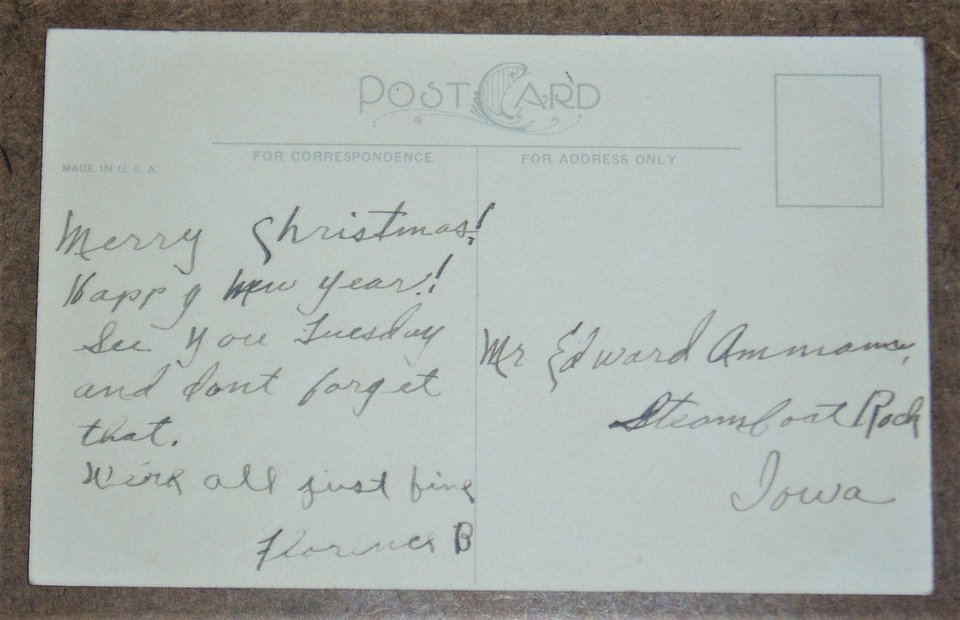 POST CARD
FOR CORRESPONDENCE
FOR ADDRESS ONLY
MADE IN U. S. A.
Merry Christmas!
Happy New Year!
See you Tuesday
and dont forget
that.
We're all just fine
Florence B
Mr Edward Ammann,
Steamboat Rock
Iowa